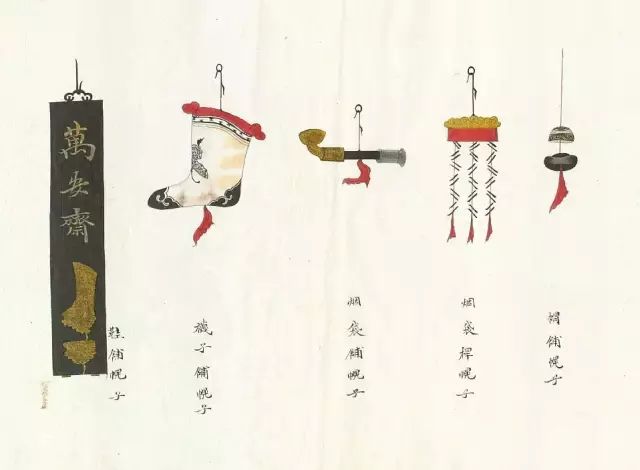 萬安齋
鞋舖幌子
襪子舖幌子
烟袋舖幌子
烟袋桿幌子
舖幌子